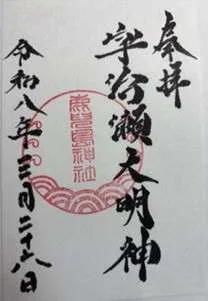 奉拝
宇治瀬大明神
鹿児島神社
令和八年三月二十六日